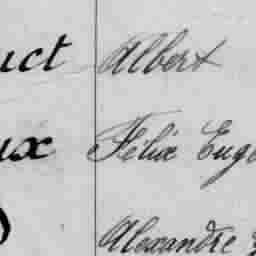 uct Albert
ux Félix Euge
Alexandre